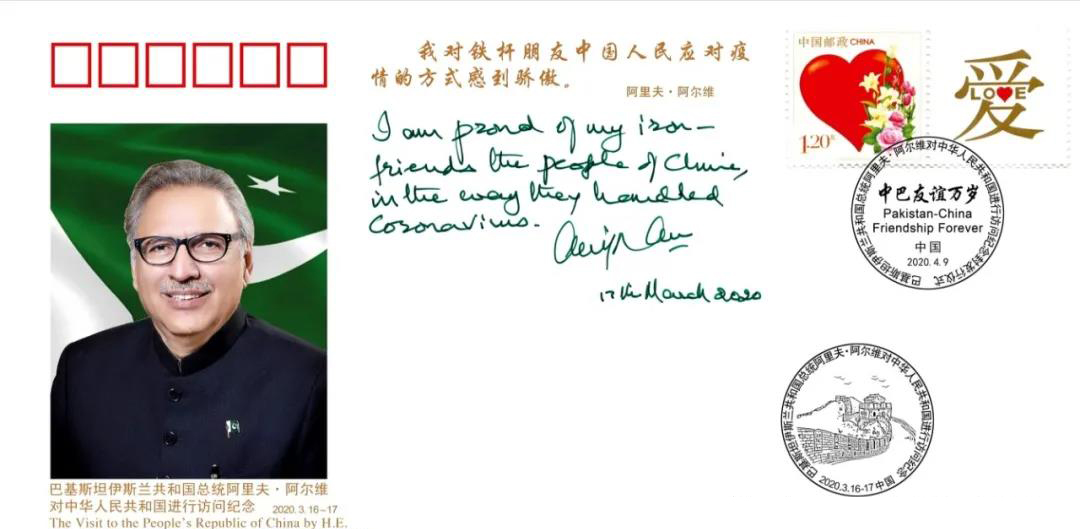 我对铁杆朋友中国人民应对疫
情的方式感到骄傲。
阿里夫·阿尔维
I am proud of my iron-
friends the people of China,
in the way they handled
Coronavirus.
17th March 2020
中国邮政 CHINA
1.20元
爱
LOVE
巴基斯坦伊斯兰共和国总统阿里夫·阿尔维对中华人民共和国进行访问纪念封发行仪式
中巴友谊万岁
Pakistan-China
Friendship Forever
中国
2020.4.9
巴基斯坦伊斯兰共和国总统阿里夫·阿尔维对中华人民共和国进行访问纪念
2020.3.16-17 中国
巴基斯坦伊斯兰共和国总统阿里夫·阿尔维
对中华人民共和国进行访问纪念 2020.3.16~17
The Visit to the People's Republic of China by H.E.